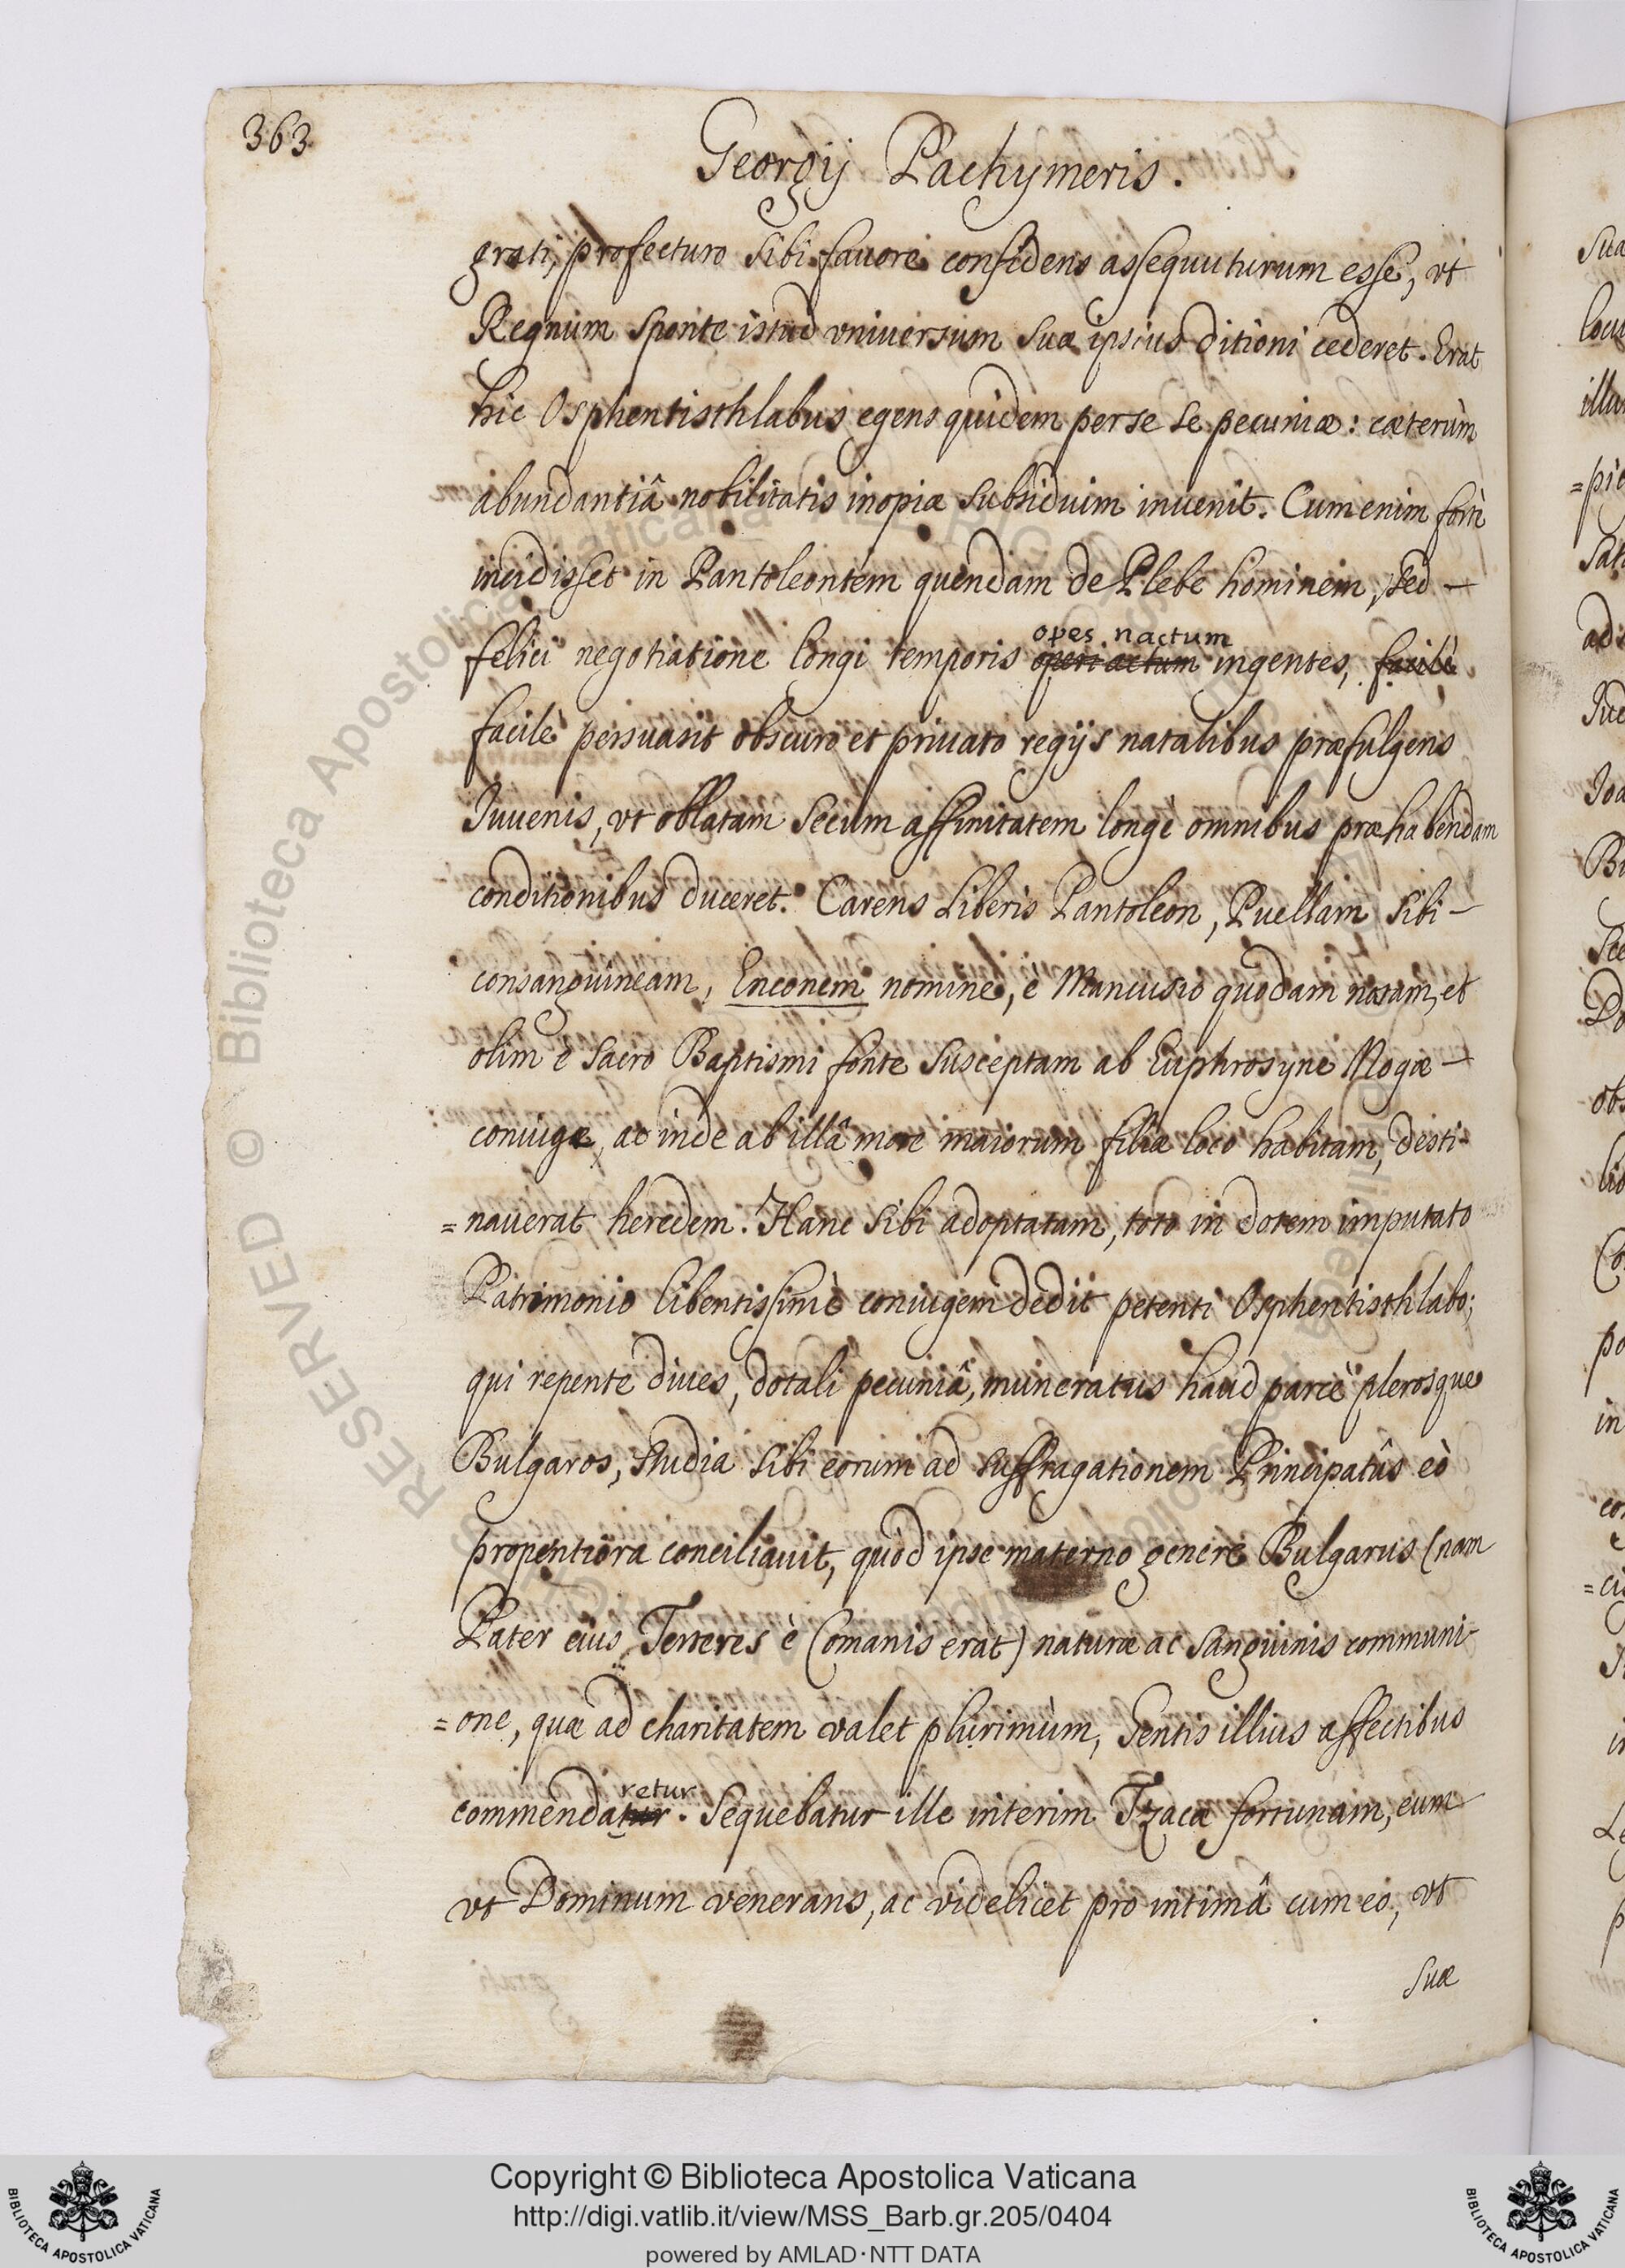 363
Georgij Pachymeris.
grati, profecturo sibi fauore confidens assequuturum esse, vt
Regnum sponte istud vniuersum suæ ipsius ditioni cederet. Erat
hic Osphentisthlabus egens quidem per se se pecuniæ: cæterùm
abundantiâ nobilitatis inopiæ subsiduim inuenit. Cum enim fortè
incidisset in Pantoleontem quendam de Plebe hominem, sed
opes nactum
felici negotiatione longi temporis operi actum ingentes, facilè
facilè persuasit obscuro et priuato regijs natalibus præfulgens
Iuuenis, vt oblatam secum affinitatem longè omnibus præhabendam
conditionibus duceret. Carens Liberis Pantoleon, Puellam sibi
consanguineam, Enconem nomine, è Mancusio quodam natam, et
olim è sacro Baptismi fonte susceptam ab Euphrosyne Nogæ
coniuge, ac inde ab illâ more maiorum filiæ loco habitam, desti-
=nauerat heredem. Hanc sibi adoptatam, toto in dotem imputato
Patrimonio libentissimè coniugem dedit petenti Osphentisthlabo;
qui repente diues, dotali pecuniâ, muneratus haud parcè plerosque
Bulgaros, studia sibi eorum ad suffragationem Principatûs eò
propentiora conciliauit, quòd ipse materno genere Bulgarus (nam
Pater eius Terteres è Comanis erat) naturæ ac sanguinis communi-
=one, quæ ad charitatem valet plurimùm, Gentis illius affectibus
retur
commendatur. Sequebatur ille interim Tzacæ fortunam, eum
vt Dominum venerans, ac videlicet pro intimâ cum eo, vt
suæ
RESERVED © Biblioteca Apostolica Vaticana
Copyright © Biblioteca Apostolica Vaticana
http://digi.vatlib.it/view/MSS_Barb.gr.205/0404
powered by AMLAD·NTT DATA
BIBLIOTECA APOSTOLICA VATICANA
BIBLIOTECA APOSTOLICA VATICANA